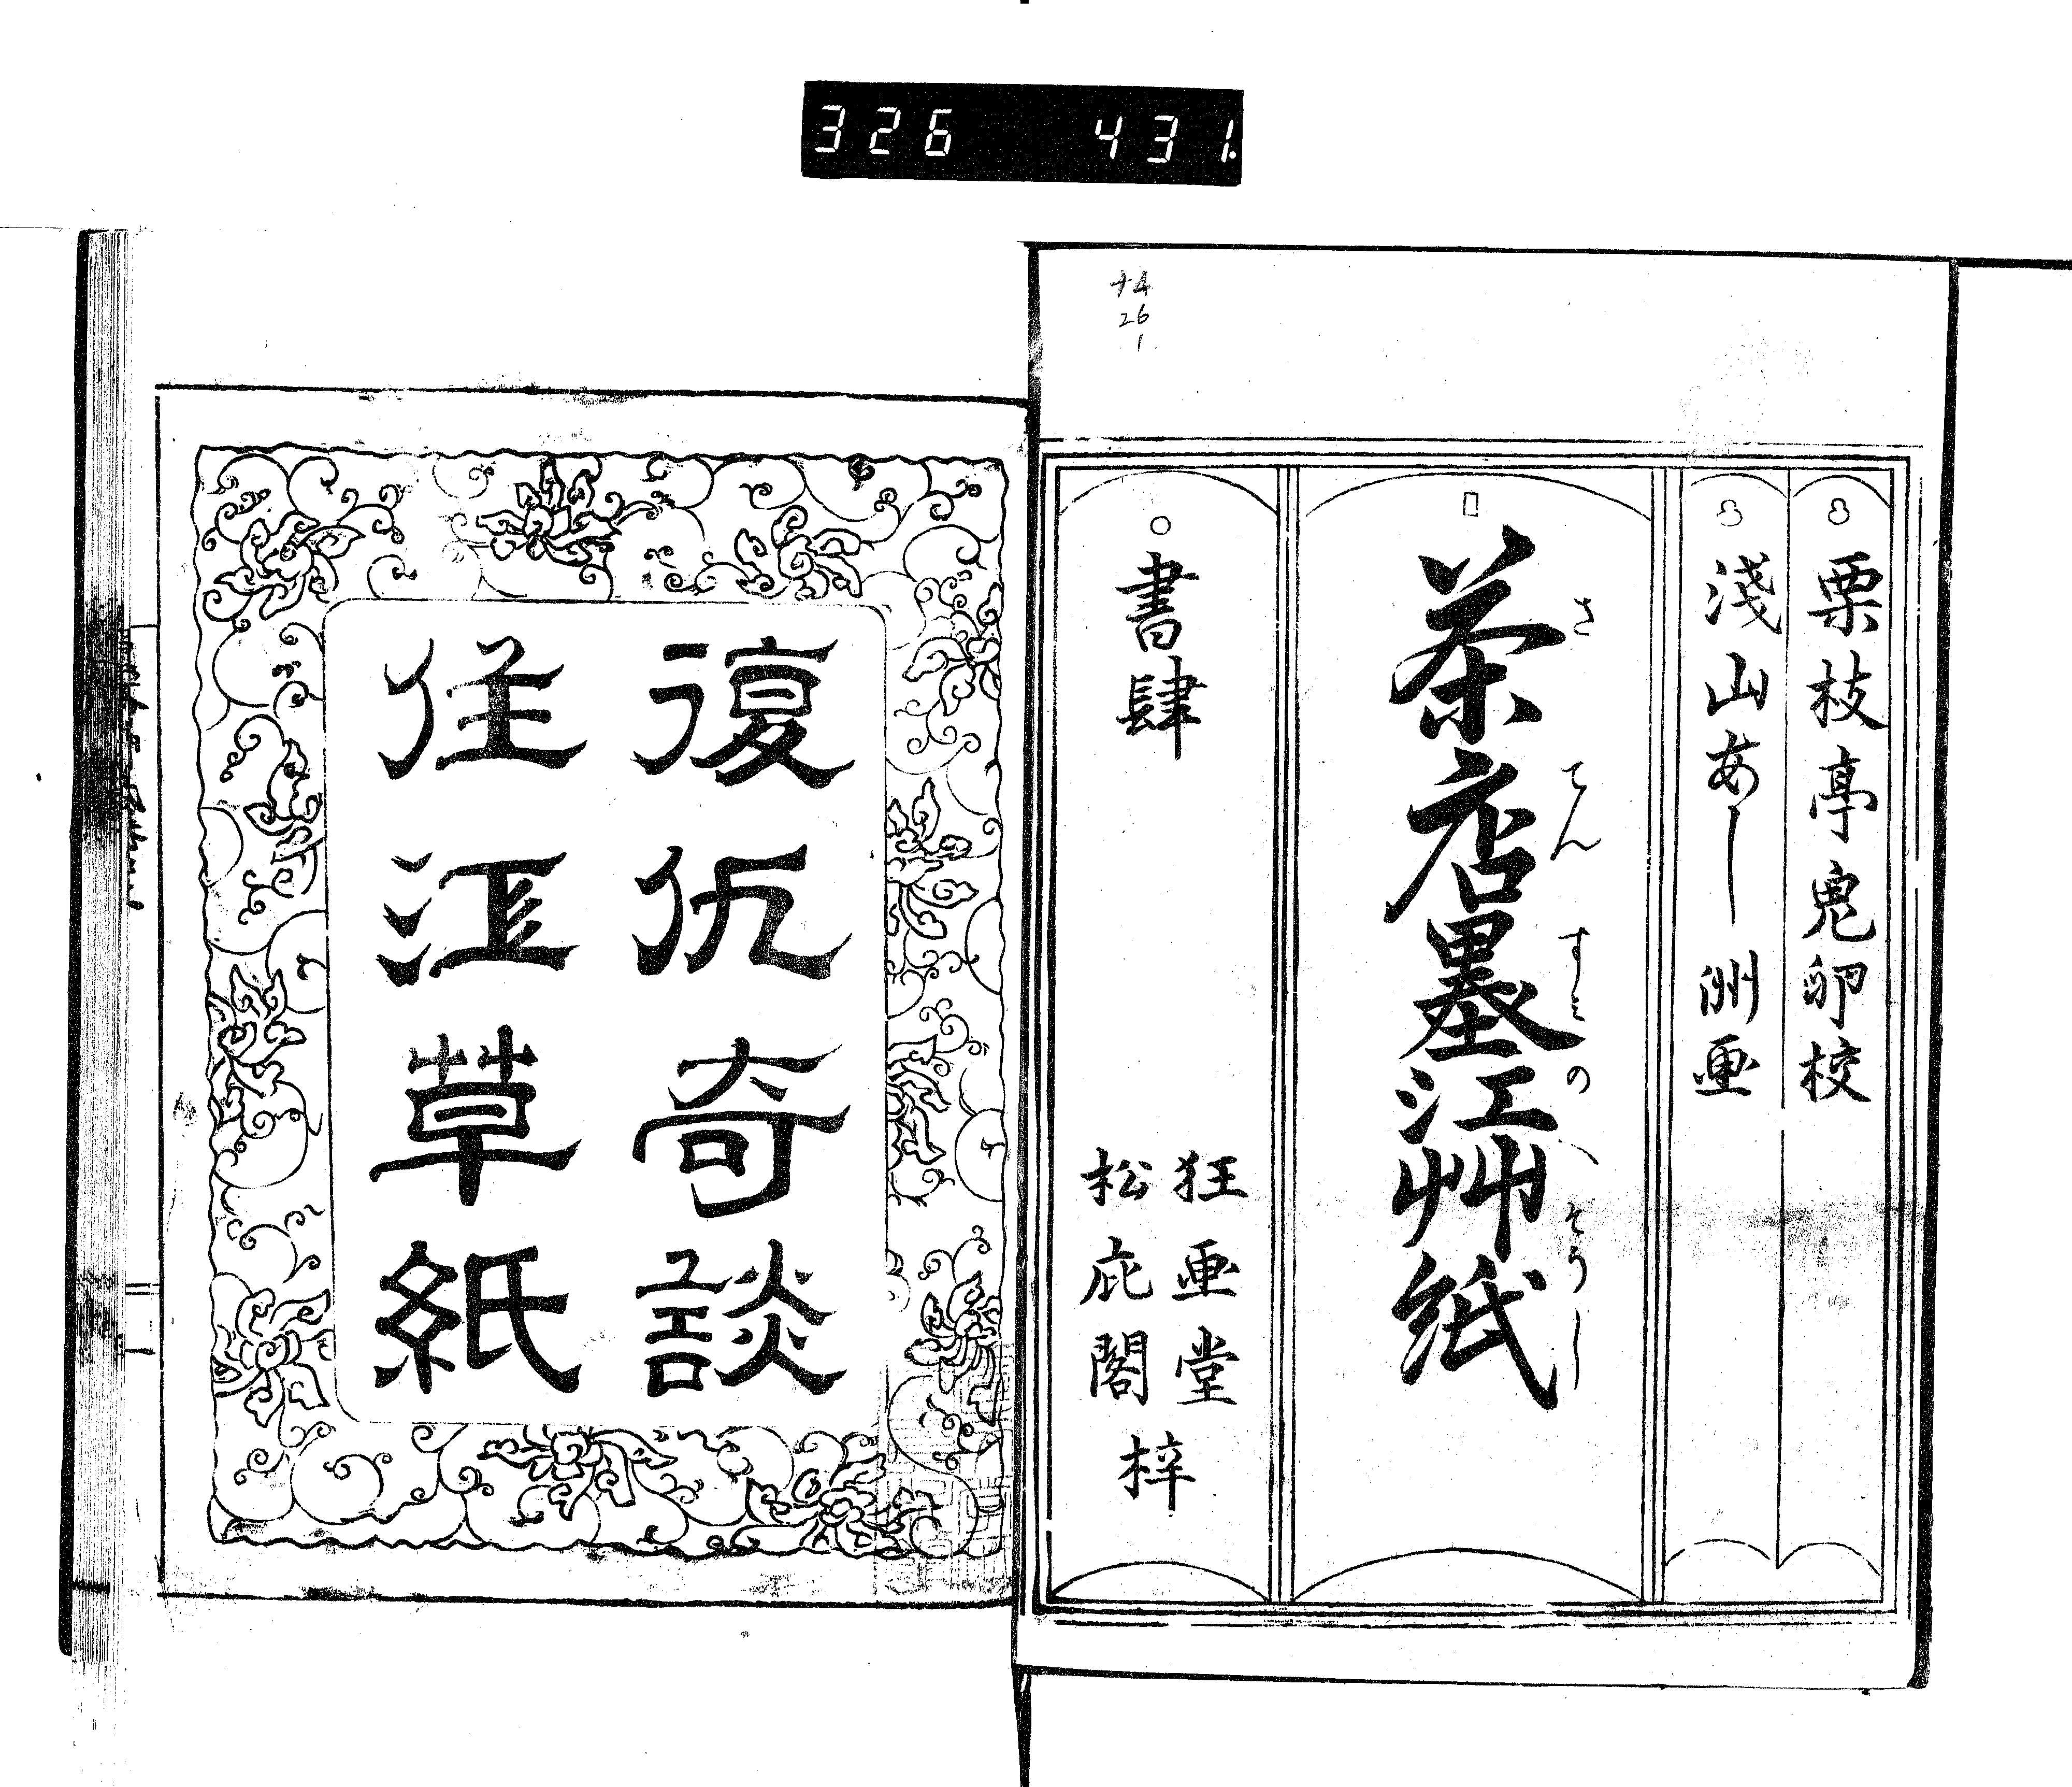 326 431.
ナ4
26
1
栗枝亭鬼卵校
淺山あし洲画
茶店墨江艸紙
さてんすみのへそうし
書肆
狂画堂
松庇閣
梓
復仇奇談
住江草紙